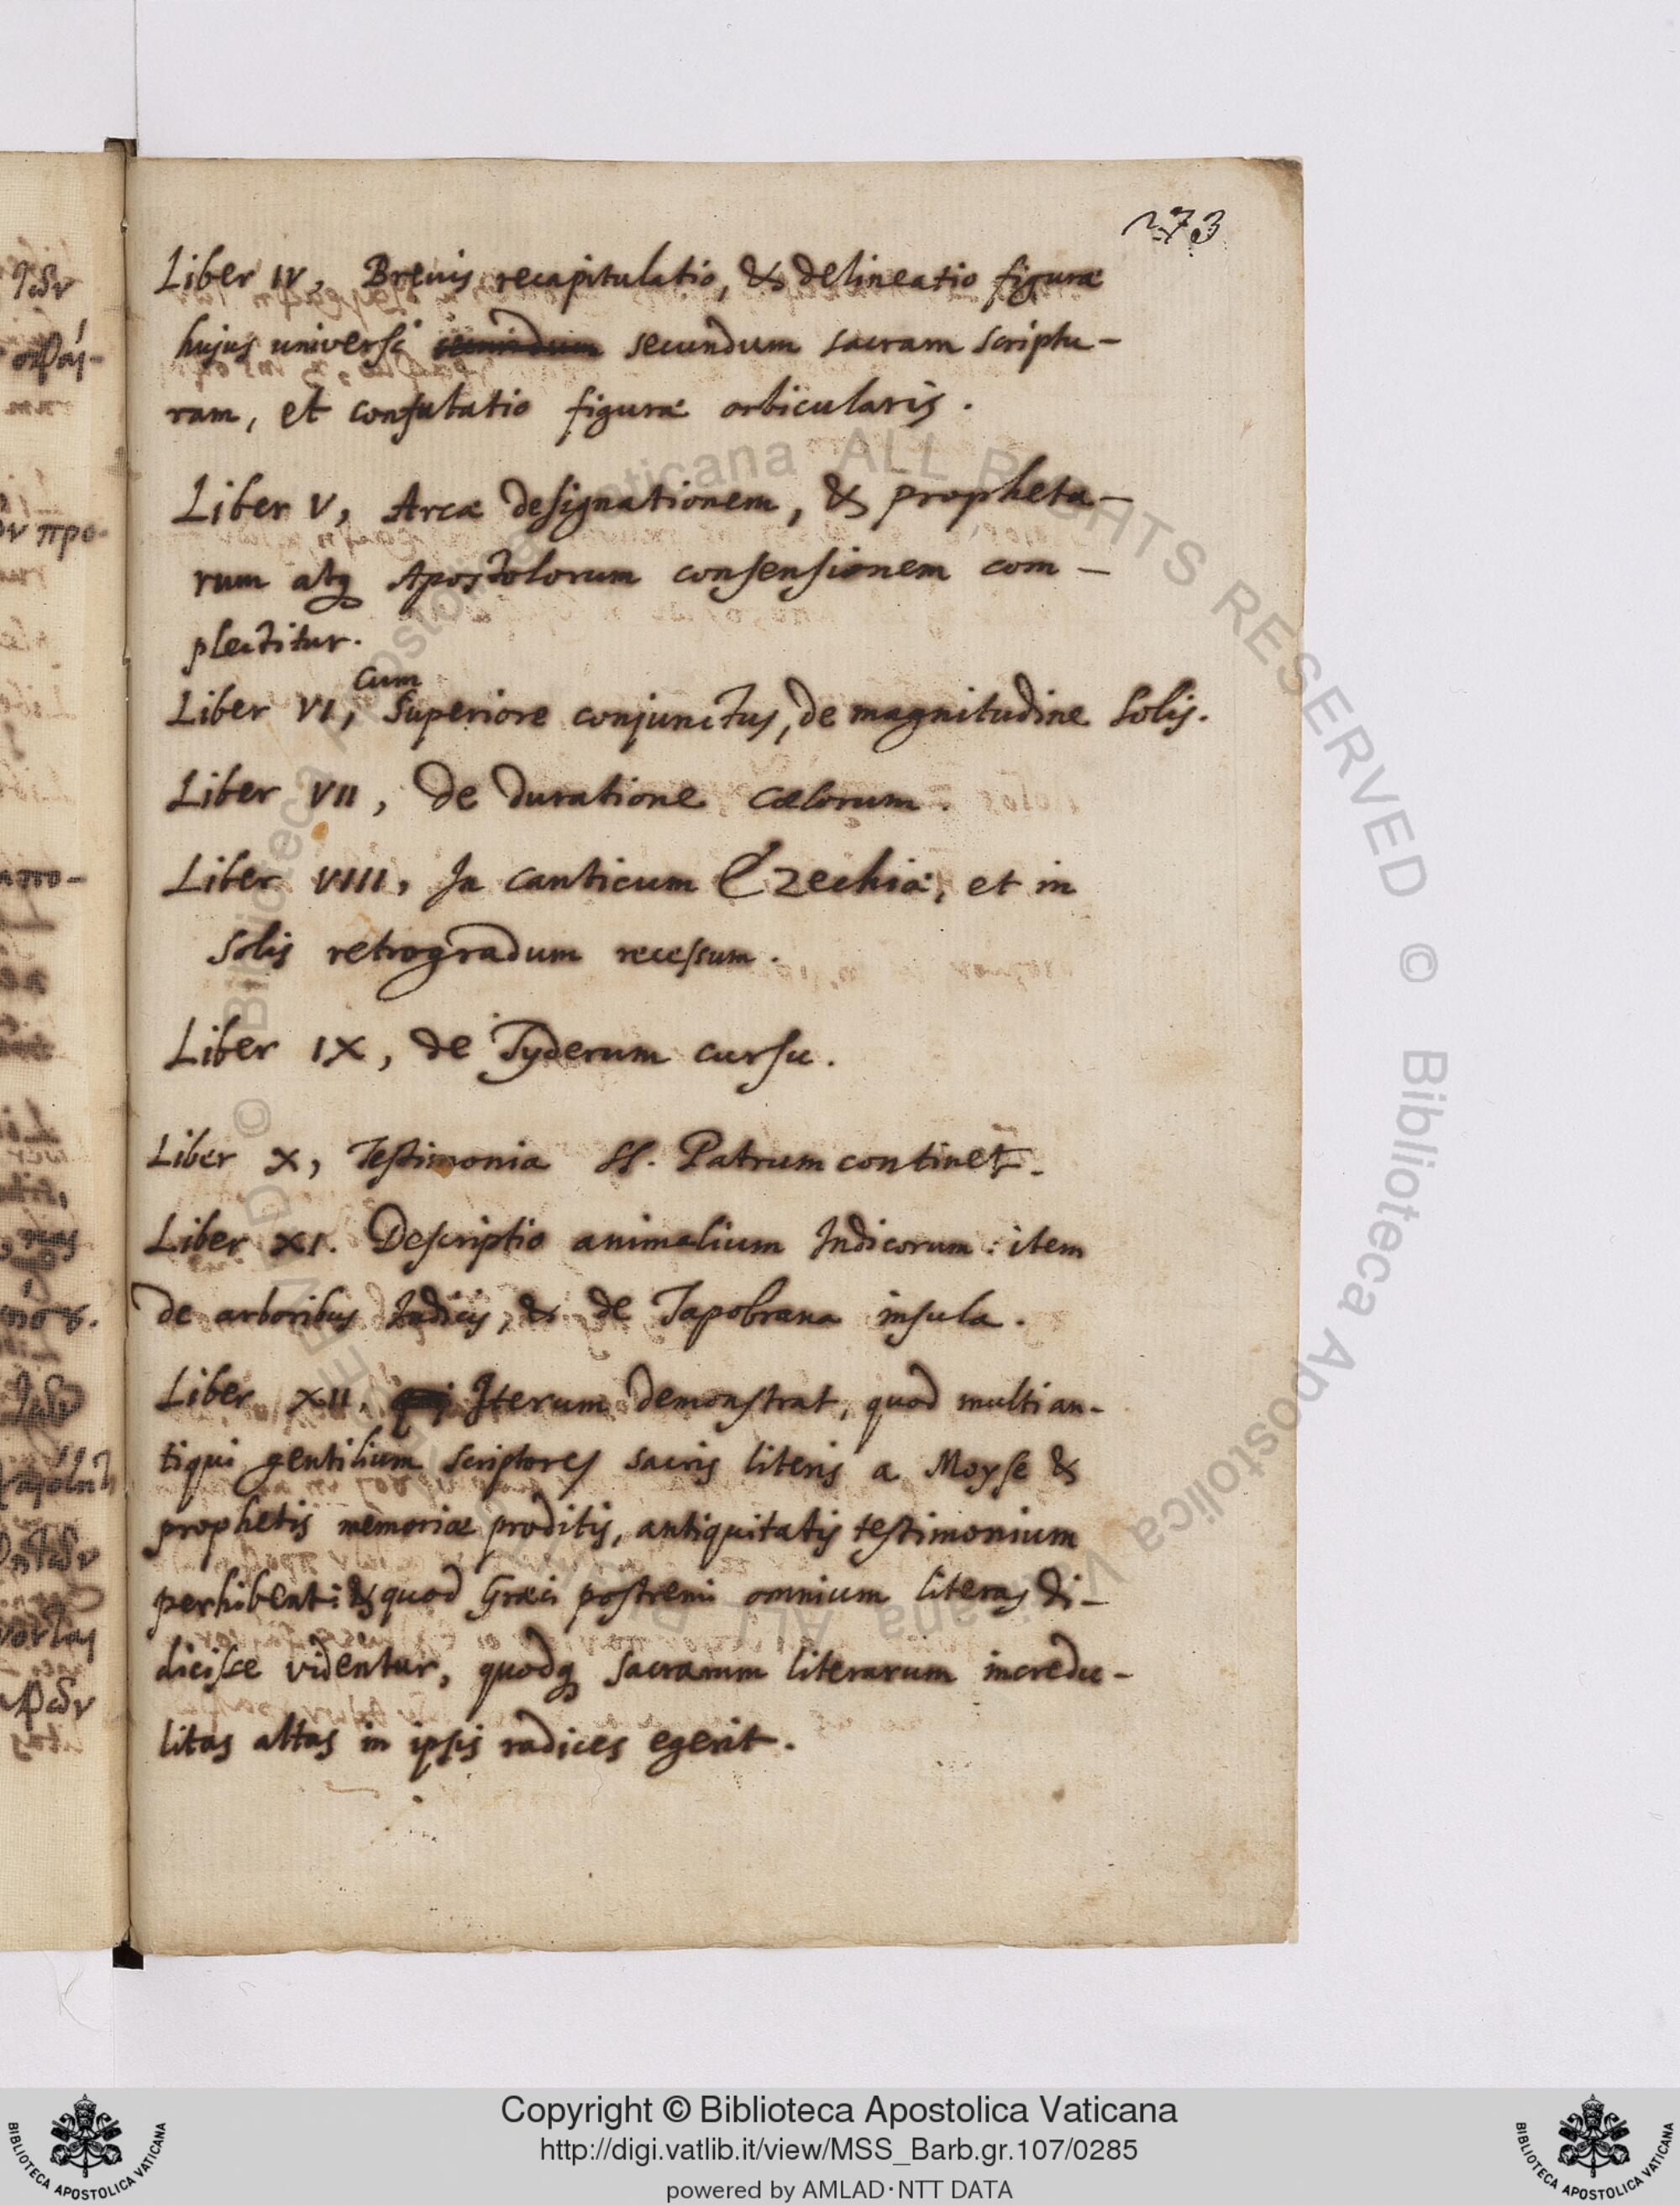 273
Liber IV, Brevis recapitulatio, & delineatio figuræ
hujus universi secundum secundum sacram scriptu-
ram, et confutatio figuræ orbicularis.
Liber V, Arcæ designationem, & propheta-
rum atq Apostolorum consensionem com-
plectitur.
cum
Liber VI, Superiore conjunctus, de magnitudine Solis.
Liber VII, de duratione cælorum.
Liber VIII, In canticum Ezechiæ, et in
Solis retrogradum recessum.
Liber IX, de Syderum cursu.
Liber X, Testimonia SS. Patrum continet.
Liber XI. Descriptio animalium Indicorum: item
de arboribus Indicis, & de Tapobrana insula.
Liber XII. Iterum demonstrat, quod multi an-
tiqui gentilium scriptores sacris literis a Moyse &
prophetis memoriæ proditis, antiquitatis testimonium
perhibeat: & quod Græci postremi omnium literas di-
dicisse videntur, quodq sacrarum literarum incredu-
litas altas in ipsis radices egerit.
Copyright © Biblioteca Apostolica Vaticana
http://digi.vatlib.it/view/MSS_Barb.gr.107/0285
powered by AMLAD·NTT DATA
BIBLIOTECA APOSTOLICA VATICANA
BIBLIOTECA APOSTOLICA VATICANA
© Biblioteca Apostolica Vaticana ALL RIGHTS RESERVED
© Biblioteca Apostolica Vaticana ALL RIGHTS RESERVED